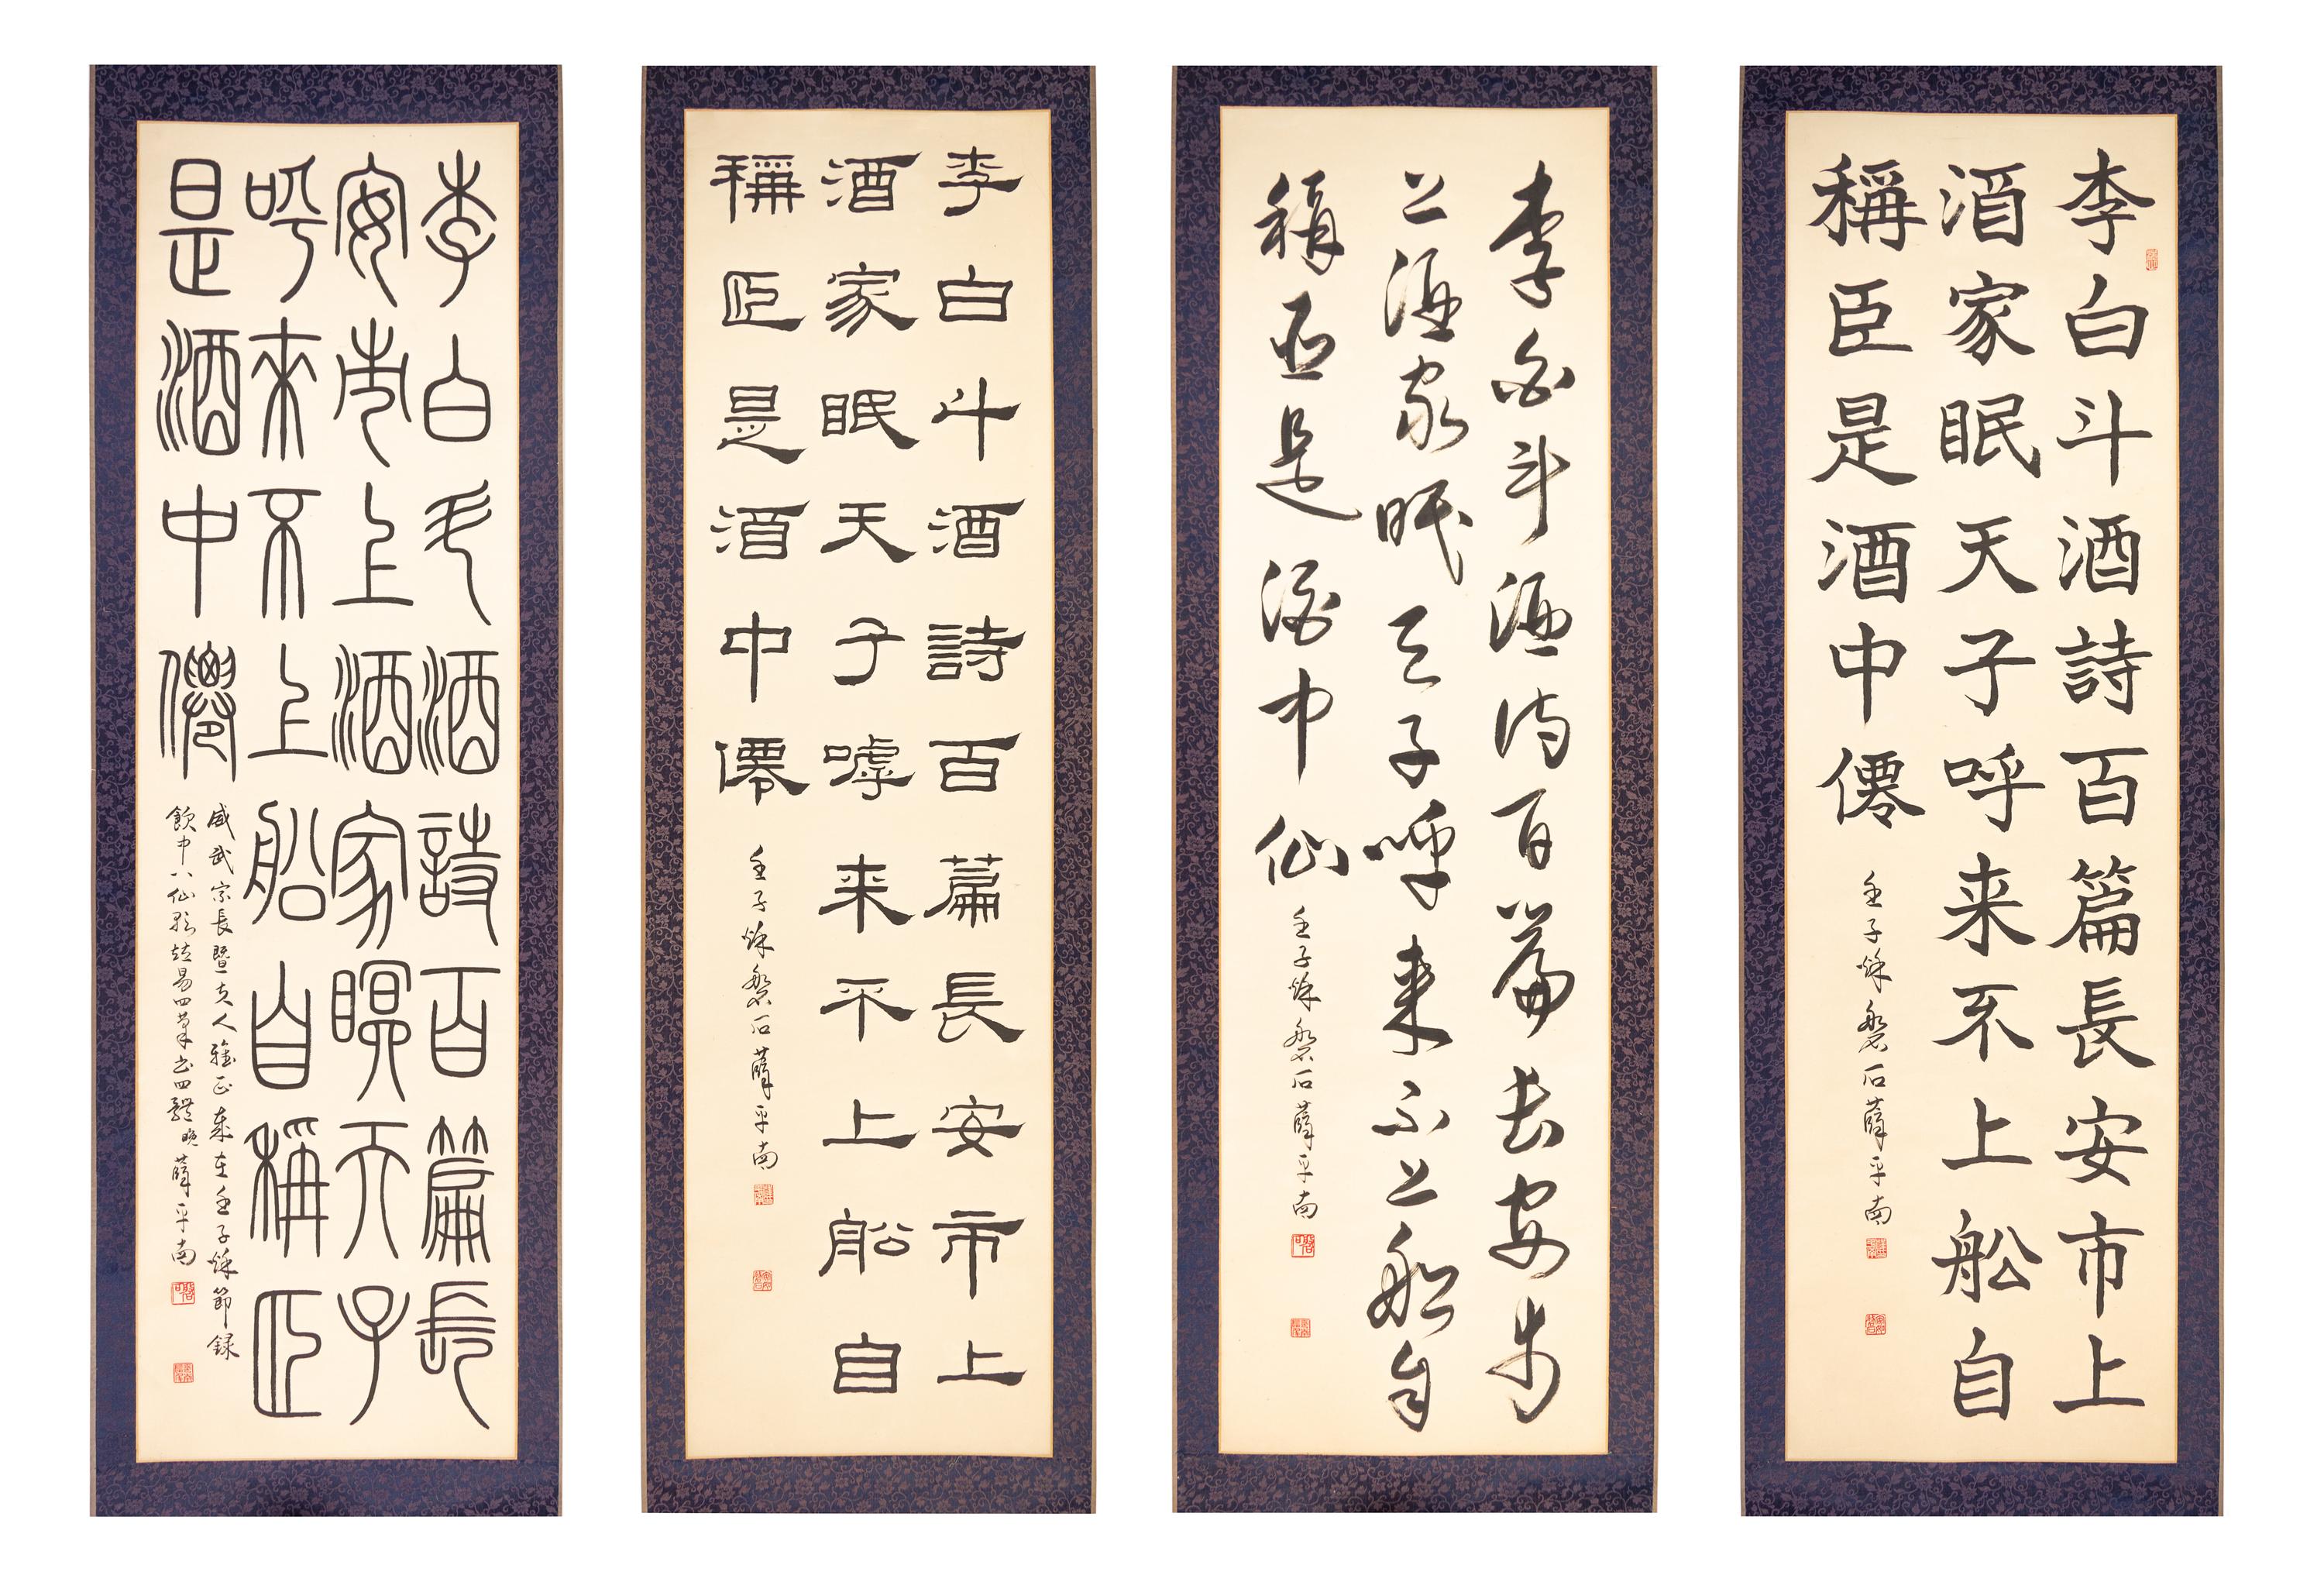 李白斗酒詩百篇長安市上
酒家眠天子呼来不上船自
稱臣是酒中僊
壬子秌磐石薛平南
李白斗酒詩百篇長安市
上酒家眠天子呼来不上船自
稱臣是酒中仙
壬子秌磐石薛平南
李白斗酒詩百篇長安市上
酒家眠天子嘑来不上船自
稱臣是酒中僊
壬子秌磐石薛平南
李白斗酒詩百篇長
安市上酒家瞑天子
呼来不上船自稱臣
是酒中僊
威武宗長暨夫人雅正歲在壬子秌節録
飲中八仙歌 易四筆書四體 晚薛平南